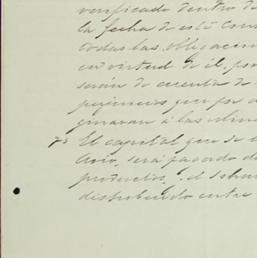 verificado dentro de
la fecha de este Con
todas las obligacion
en virtud de él, por
serán de cuenta de
perjuicios que por
ginaran á las
7ª El capital que se
será pagado
productos, el
distribuido entre